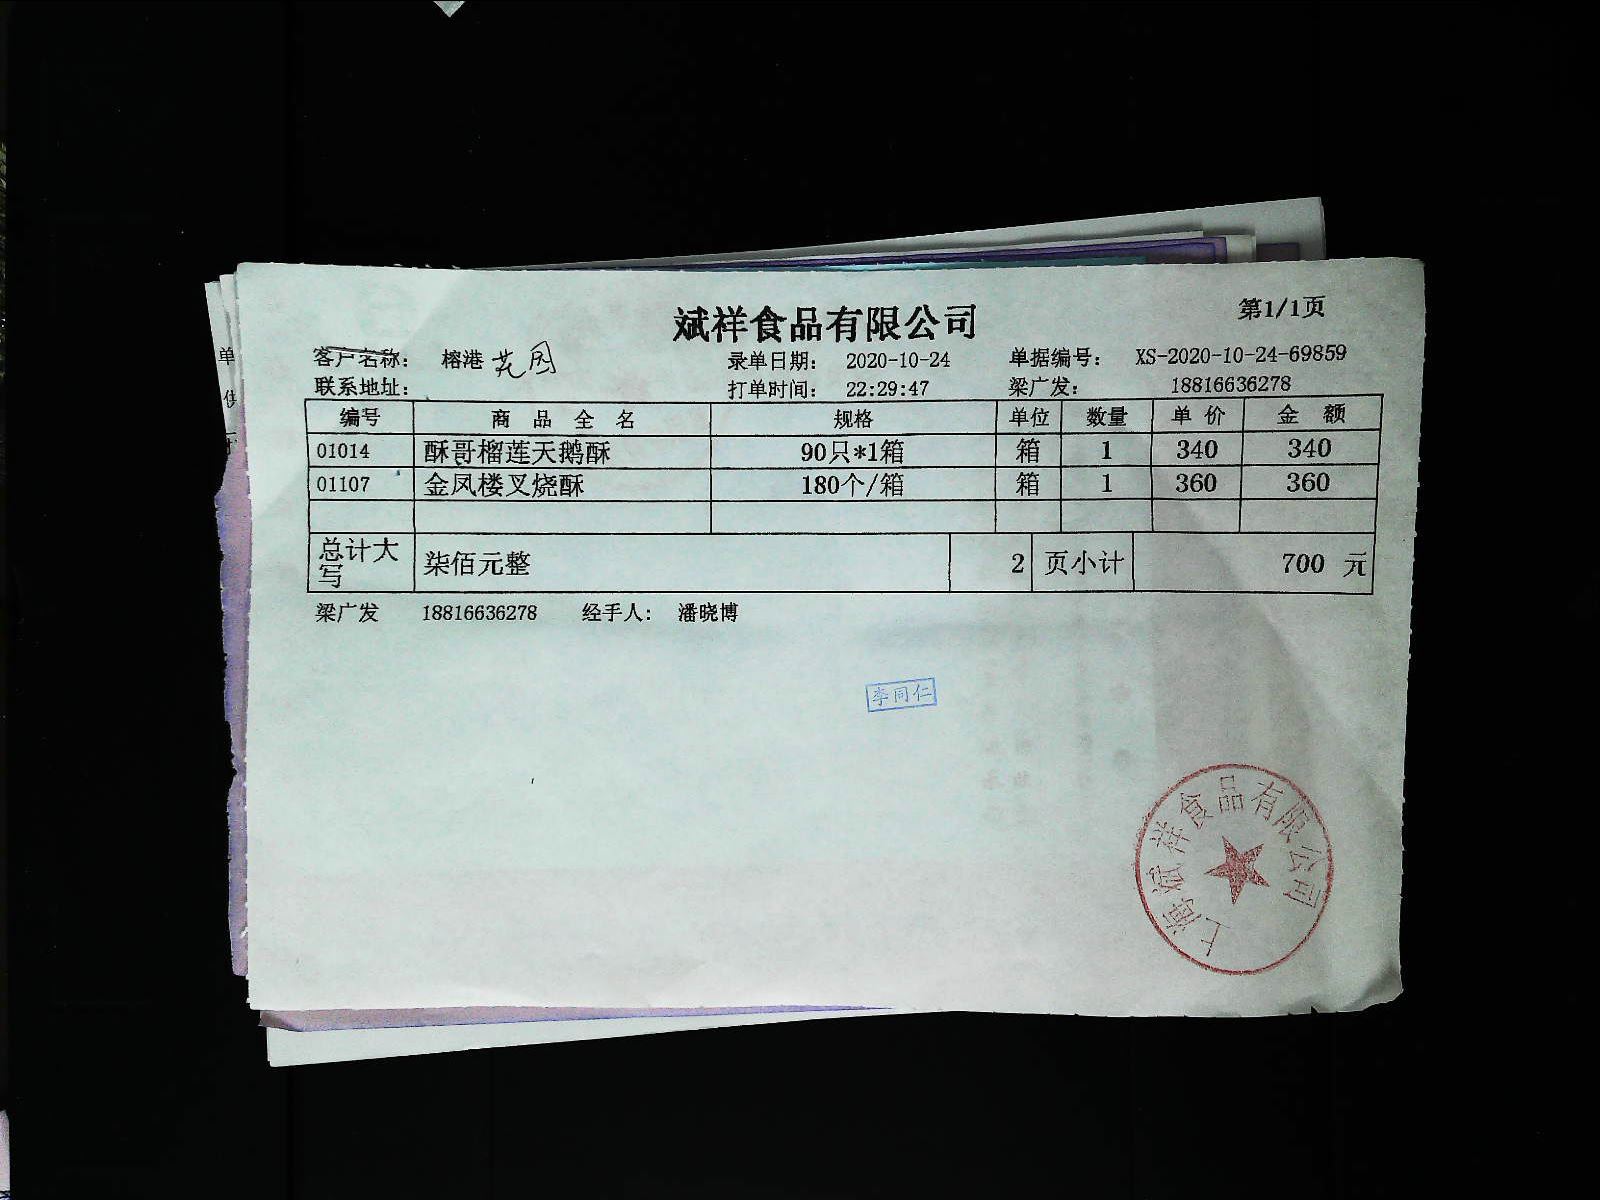 斌祥食品有限公司
第1/1页
客户名称： 榕港 花园 录单日期： 2020-10-24 单据编号： XS-2020-10-24-69859
联系地址： 打单时间： 22:29:47 梁广发： 18816636278
编号 商品全名 规格 单位 数量 单价 金额
01014 酥哥榴莲天鹅酥 90只*1箱 箱 1 340 340
01107 金凤楼叉烧酥 180个/箱 箱 1 360 360
总计大写 柒佰元整 2 页小计 700 元
梁广发 18816636278 经手人： 潘晓博
李同仁
上海斌祥食品有限公司
单
供